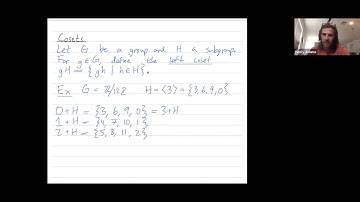 Cosets
Let G be a group and H a subgroup.
For g∈G, define the left coset
gH = {gh | h∈H}.
Ex G = ℤ/12ℤ H = ⟨3⟩ = {3,6,9,0}
0+H = {3, 6, 9, 0} = 3+H
1+H = {4, 7, 10, 1}
2+H = {5, 8, 11, 2}